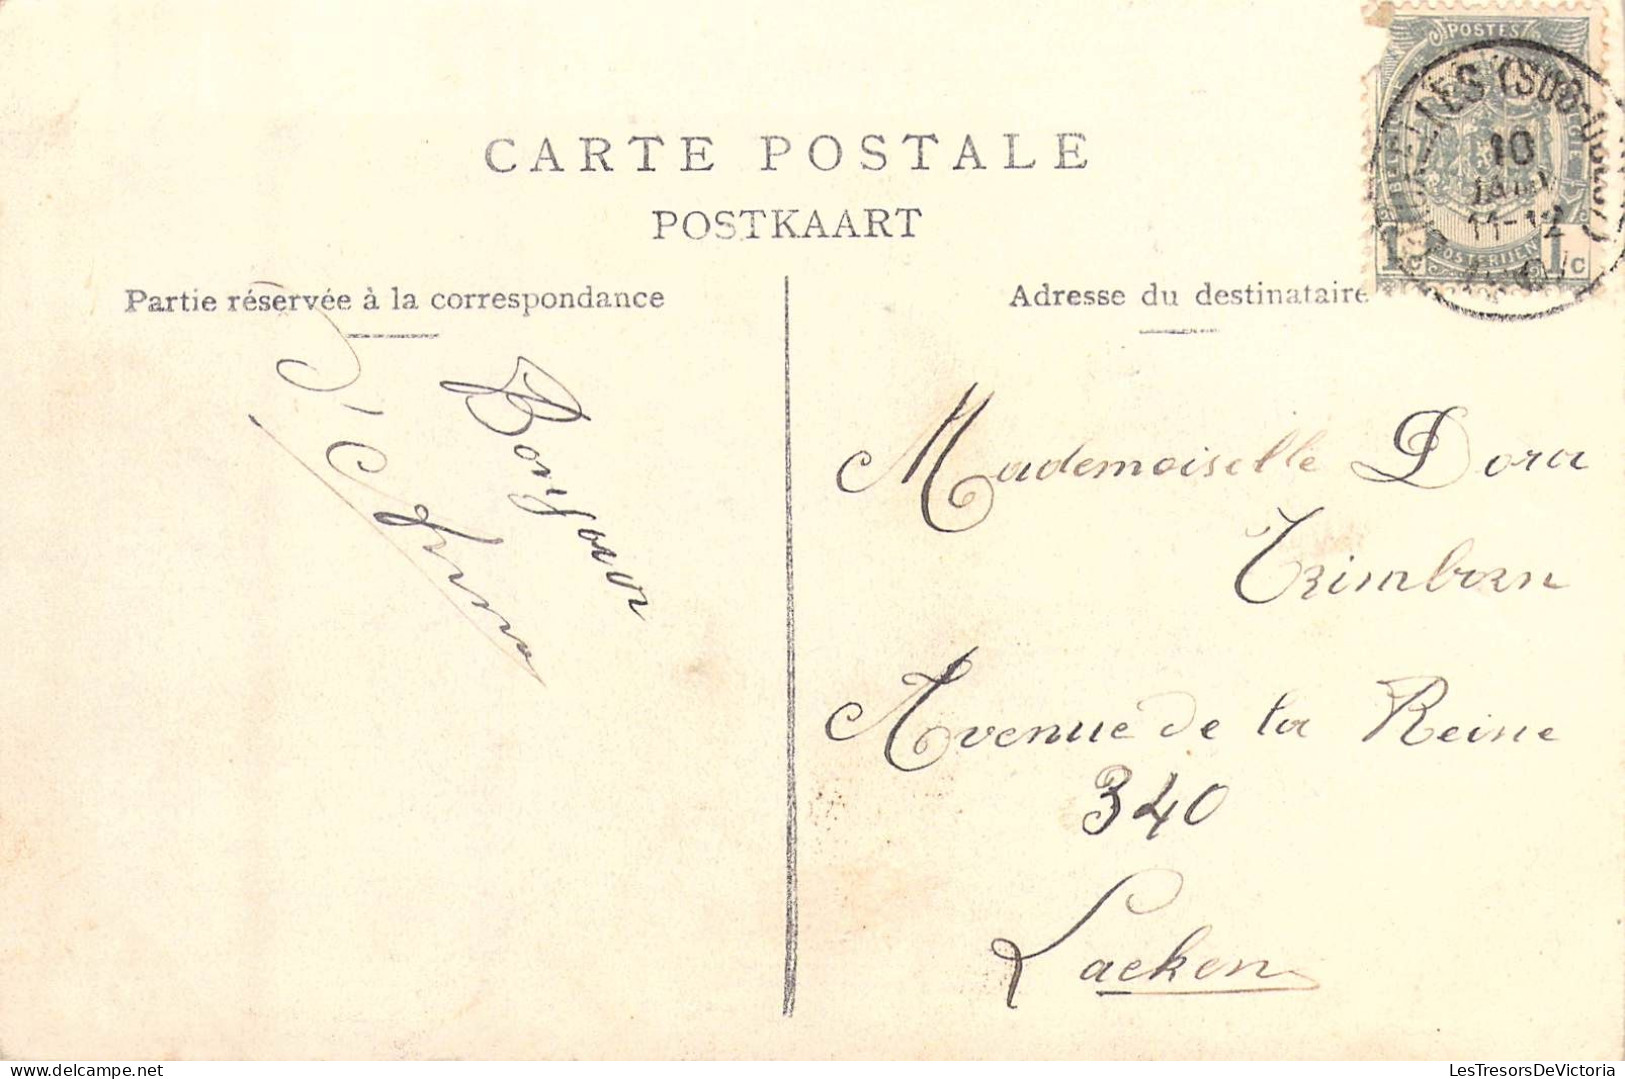 CARTE POSTALE
POSTKAART
Partie réservée à la correspondance
Adresse du destinataire
POSTES
10
11-12
POSTERIJEN
1 1c
Bonjour
Mademoiselle Dora
Trimborn
Avenue de la Reine
340
Laeken
LesTresorsDeVictoria